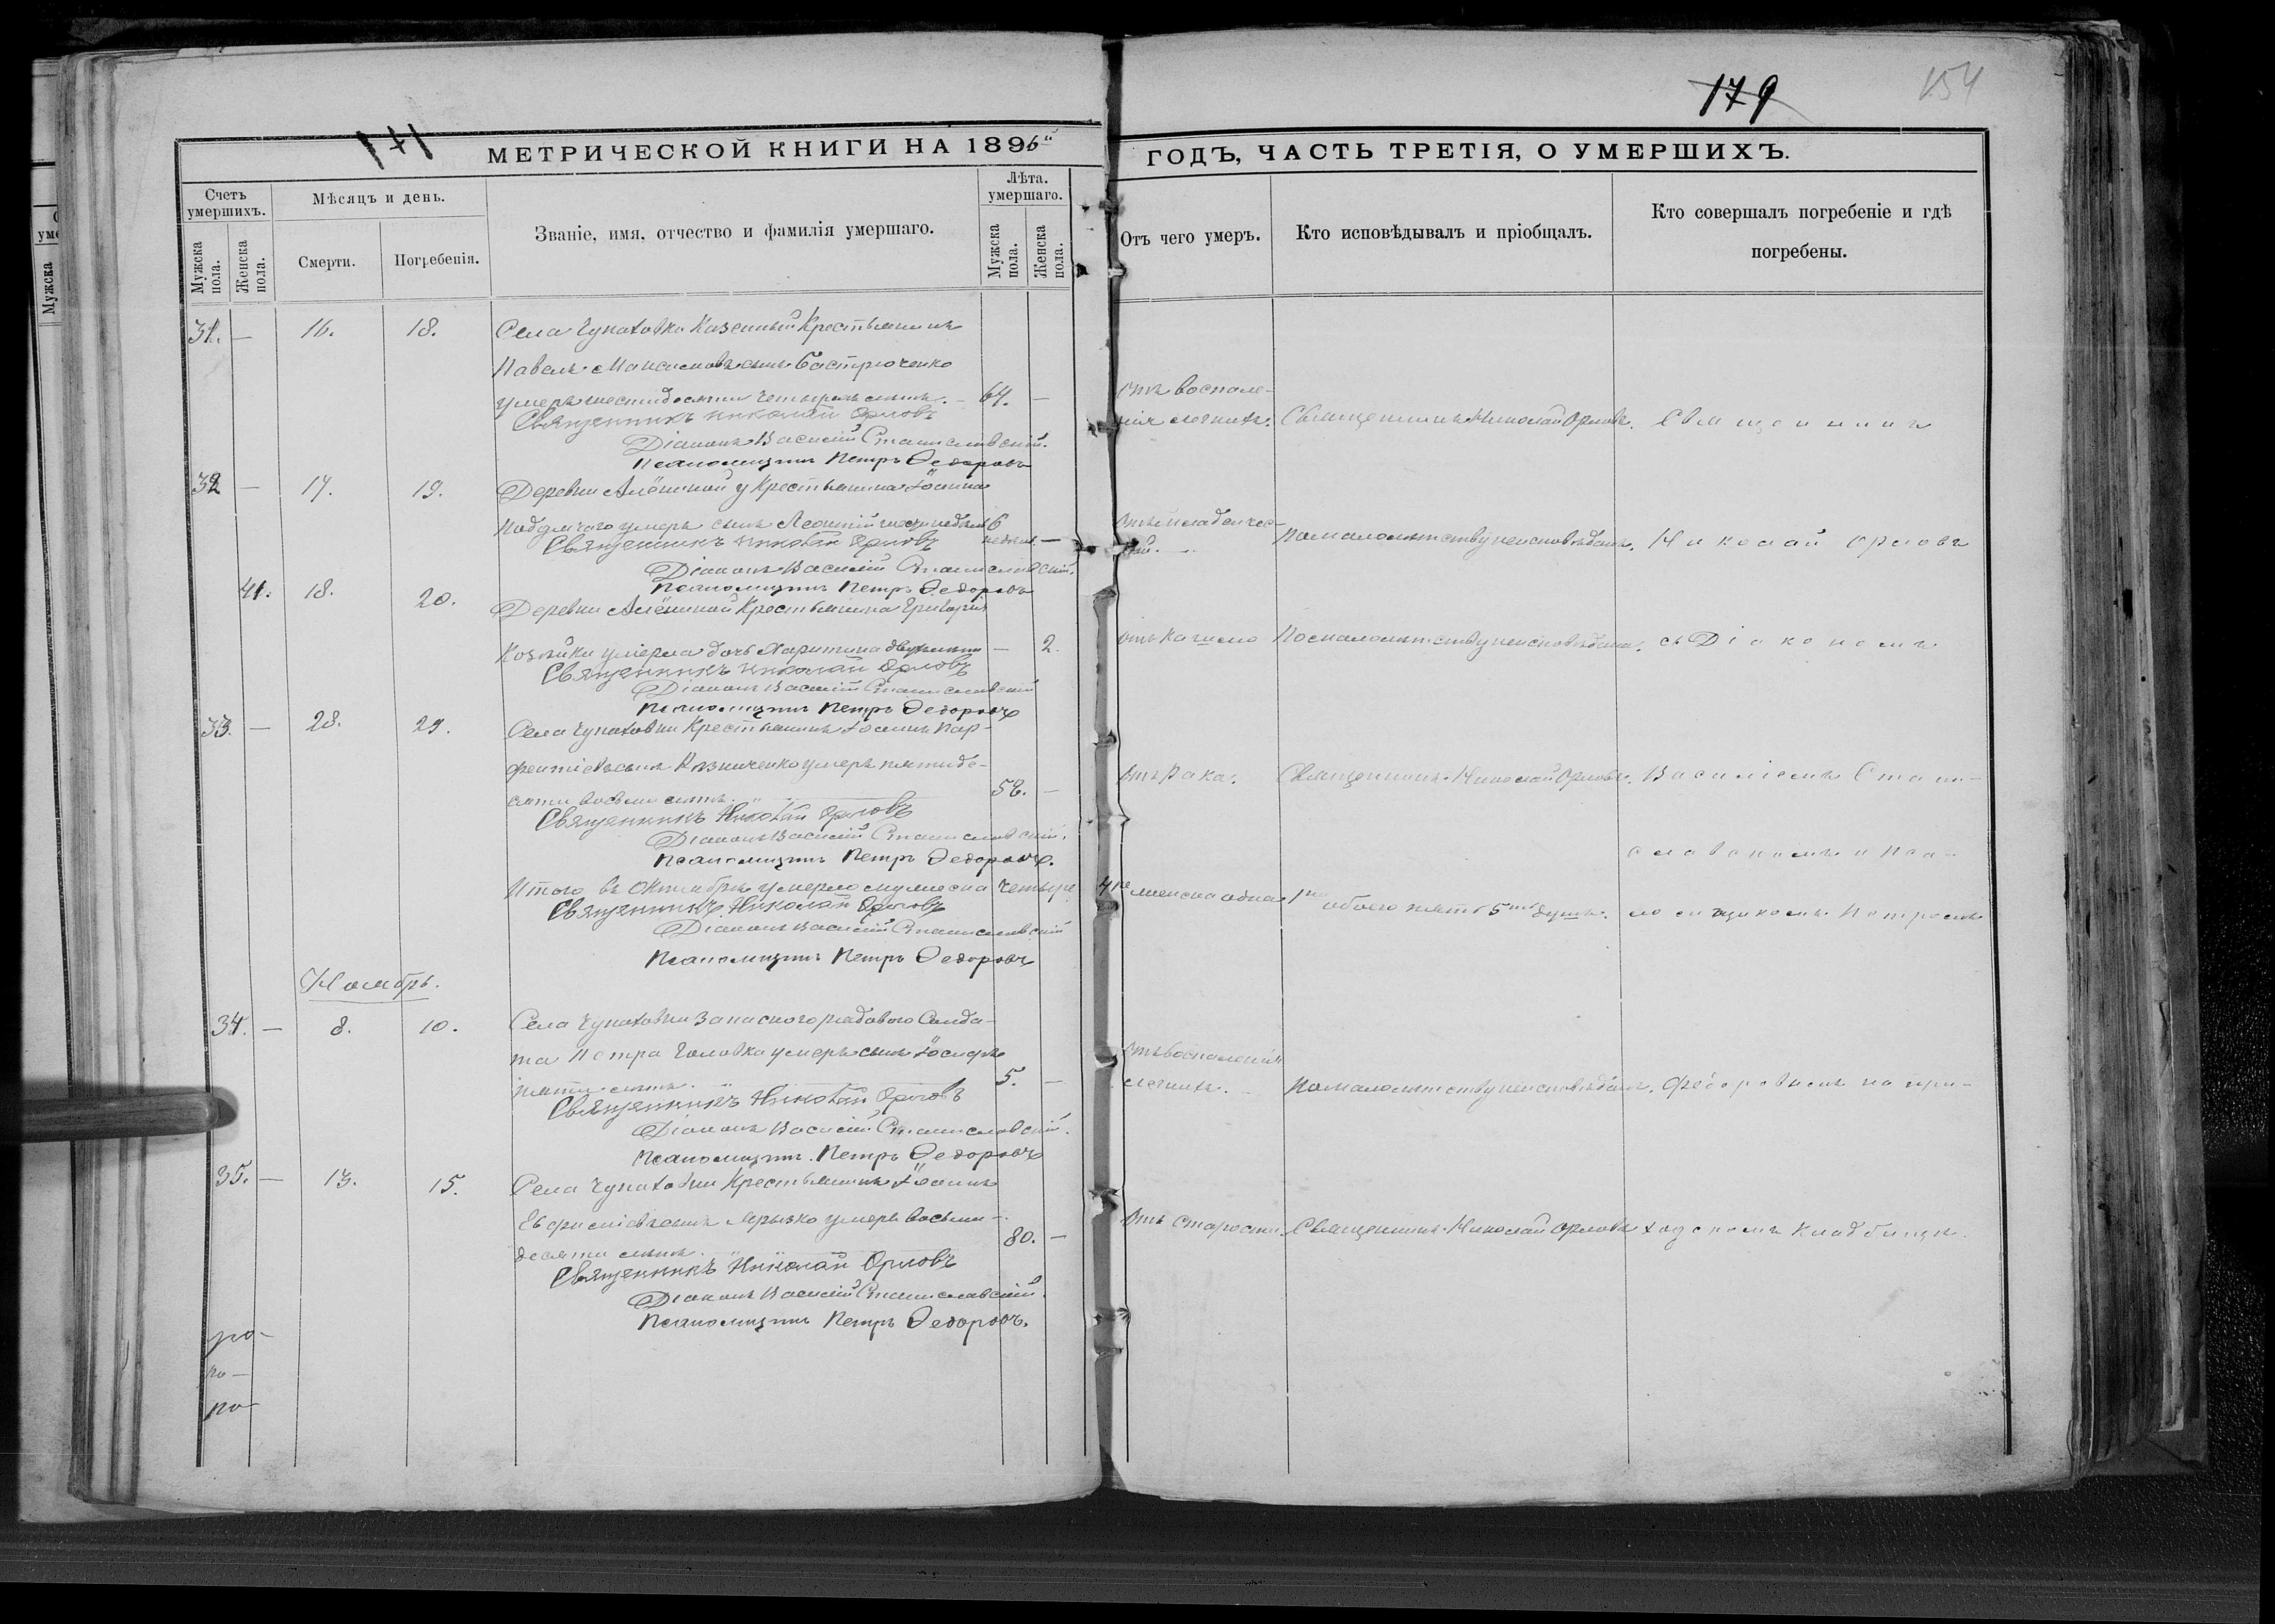 179
154
171
МЕТРИЧЕСКОЙ КНИГИ НА 1896й
ГОДЪ, ЧАСТЬ ТРЕТІЯ, О УМЕРШИХЪ.
Счетъ умершихъ.
Мужска пола.
Женска пола.
Мѣсяцъ и день.
Смерти.
Погребенія.
Званіе, имя, отчество и фамилія умершаго.
Лѣта. умершаго.
Мужска пола.
Женска пола.
Отъ чего умеръ.
Кто исповѣдывалъ и пріобщалъ.
Кто совершалъ погребеніе и гдѣ
погребены.
31. — 16. 18. Села Чупаховки Казенный Крестьянинъ
Павелъ Максимовъ сынъ Бастрюченко
умеръ шестидесяти четырехъ лѣтъ. — 64. —
Отъ воспале-
нія легкихъ. Священникъ Николай Орловъ. Священникъ
Священникъ Николай Орловъ
Діаконъ Василій Станиславскій.
Псаломщикъ Петръ Федоровъ
32 — 17. 19. Деревни Алёшиной у Крестьянина Іоанна
умеръ сынъ Леонтій шести недѣль 6 недѣль. —
Отъ младенчес-
кой. По малолѣтству неисповѣданъ. Николай Орловъ
Священникъ Николай Орловъ
Діаконъ Василій Станиславскій.
Псаломщикъ Петръ Федоровъ
41. 18. 20. Деревни Алёшиной Крестьянина Григорія
Козейки умерла дочь Харитина двухъ лѣтъ — 2.
Отъ кашлю По малолѣтству неисповѣдана. съ Діакономъ
Священникъ Николай Орловъ
Діаконъ Василій Станиславскій
Псаломщикъ Петръ Федоровъ
33. — 28. 29. Села Чупаховки Крестьянинъ Іоаннъ Пар-
фентіевъ сынъ умеръ пятиде-
сяти восьми лѣтъ. 58. —
Отъ Рака. Священникъ Николай Орловъ. Василіемъ Стани-
Священникъ Николай Орловъ
Діаконъ Василій Станиславскій.
Псаломщикъ Петръ Федоровъ.
славскимъ и Пса-
Итого въ Октябрѣ умерло мужеска четыре 4ре женска одна 1на обоего пять 5ть душъ. ломщикомъ Петромъ
Священникъ Николай Орловъ
Діаконъ Василій Станиславскій
Псаломщикъ Петръ Федоровъ
Ноябрь.
34. — 8. 10. Села Чупаховки запаснаго рядоваго Солда-
та Петра Головка умеръ сынъ Іосифъ
пяти лѣтъ. 5. —
Отъ воспаленія
легкихъ. По малолѣтству неисповѣданъ. Федоровымъ на при-
Священникъ Николай Орловъ
Діаконъ Василій Станиславскій.
Псаломщикъ. Петръ Федоровъ
35. — 13. 15. Села Чупаховки Крестьянинъ Іоаннъ
Евфиміевъ сынъ умеръ восьми-
десяти лѣтъ. 80. —
Отъ старости. Священникъ Николай Орловъ ходскомъ кладбищѣ.
Священникъ Николай Орловъ
Діаконъ Василій Станиславскій.
Псаломщикъ Петръ Федоровъ.